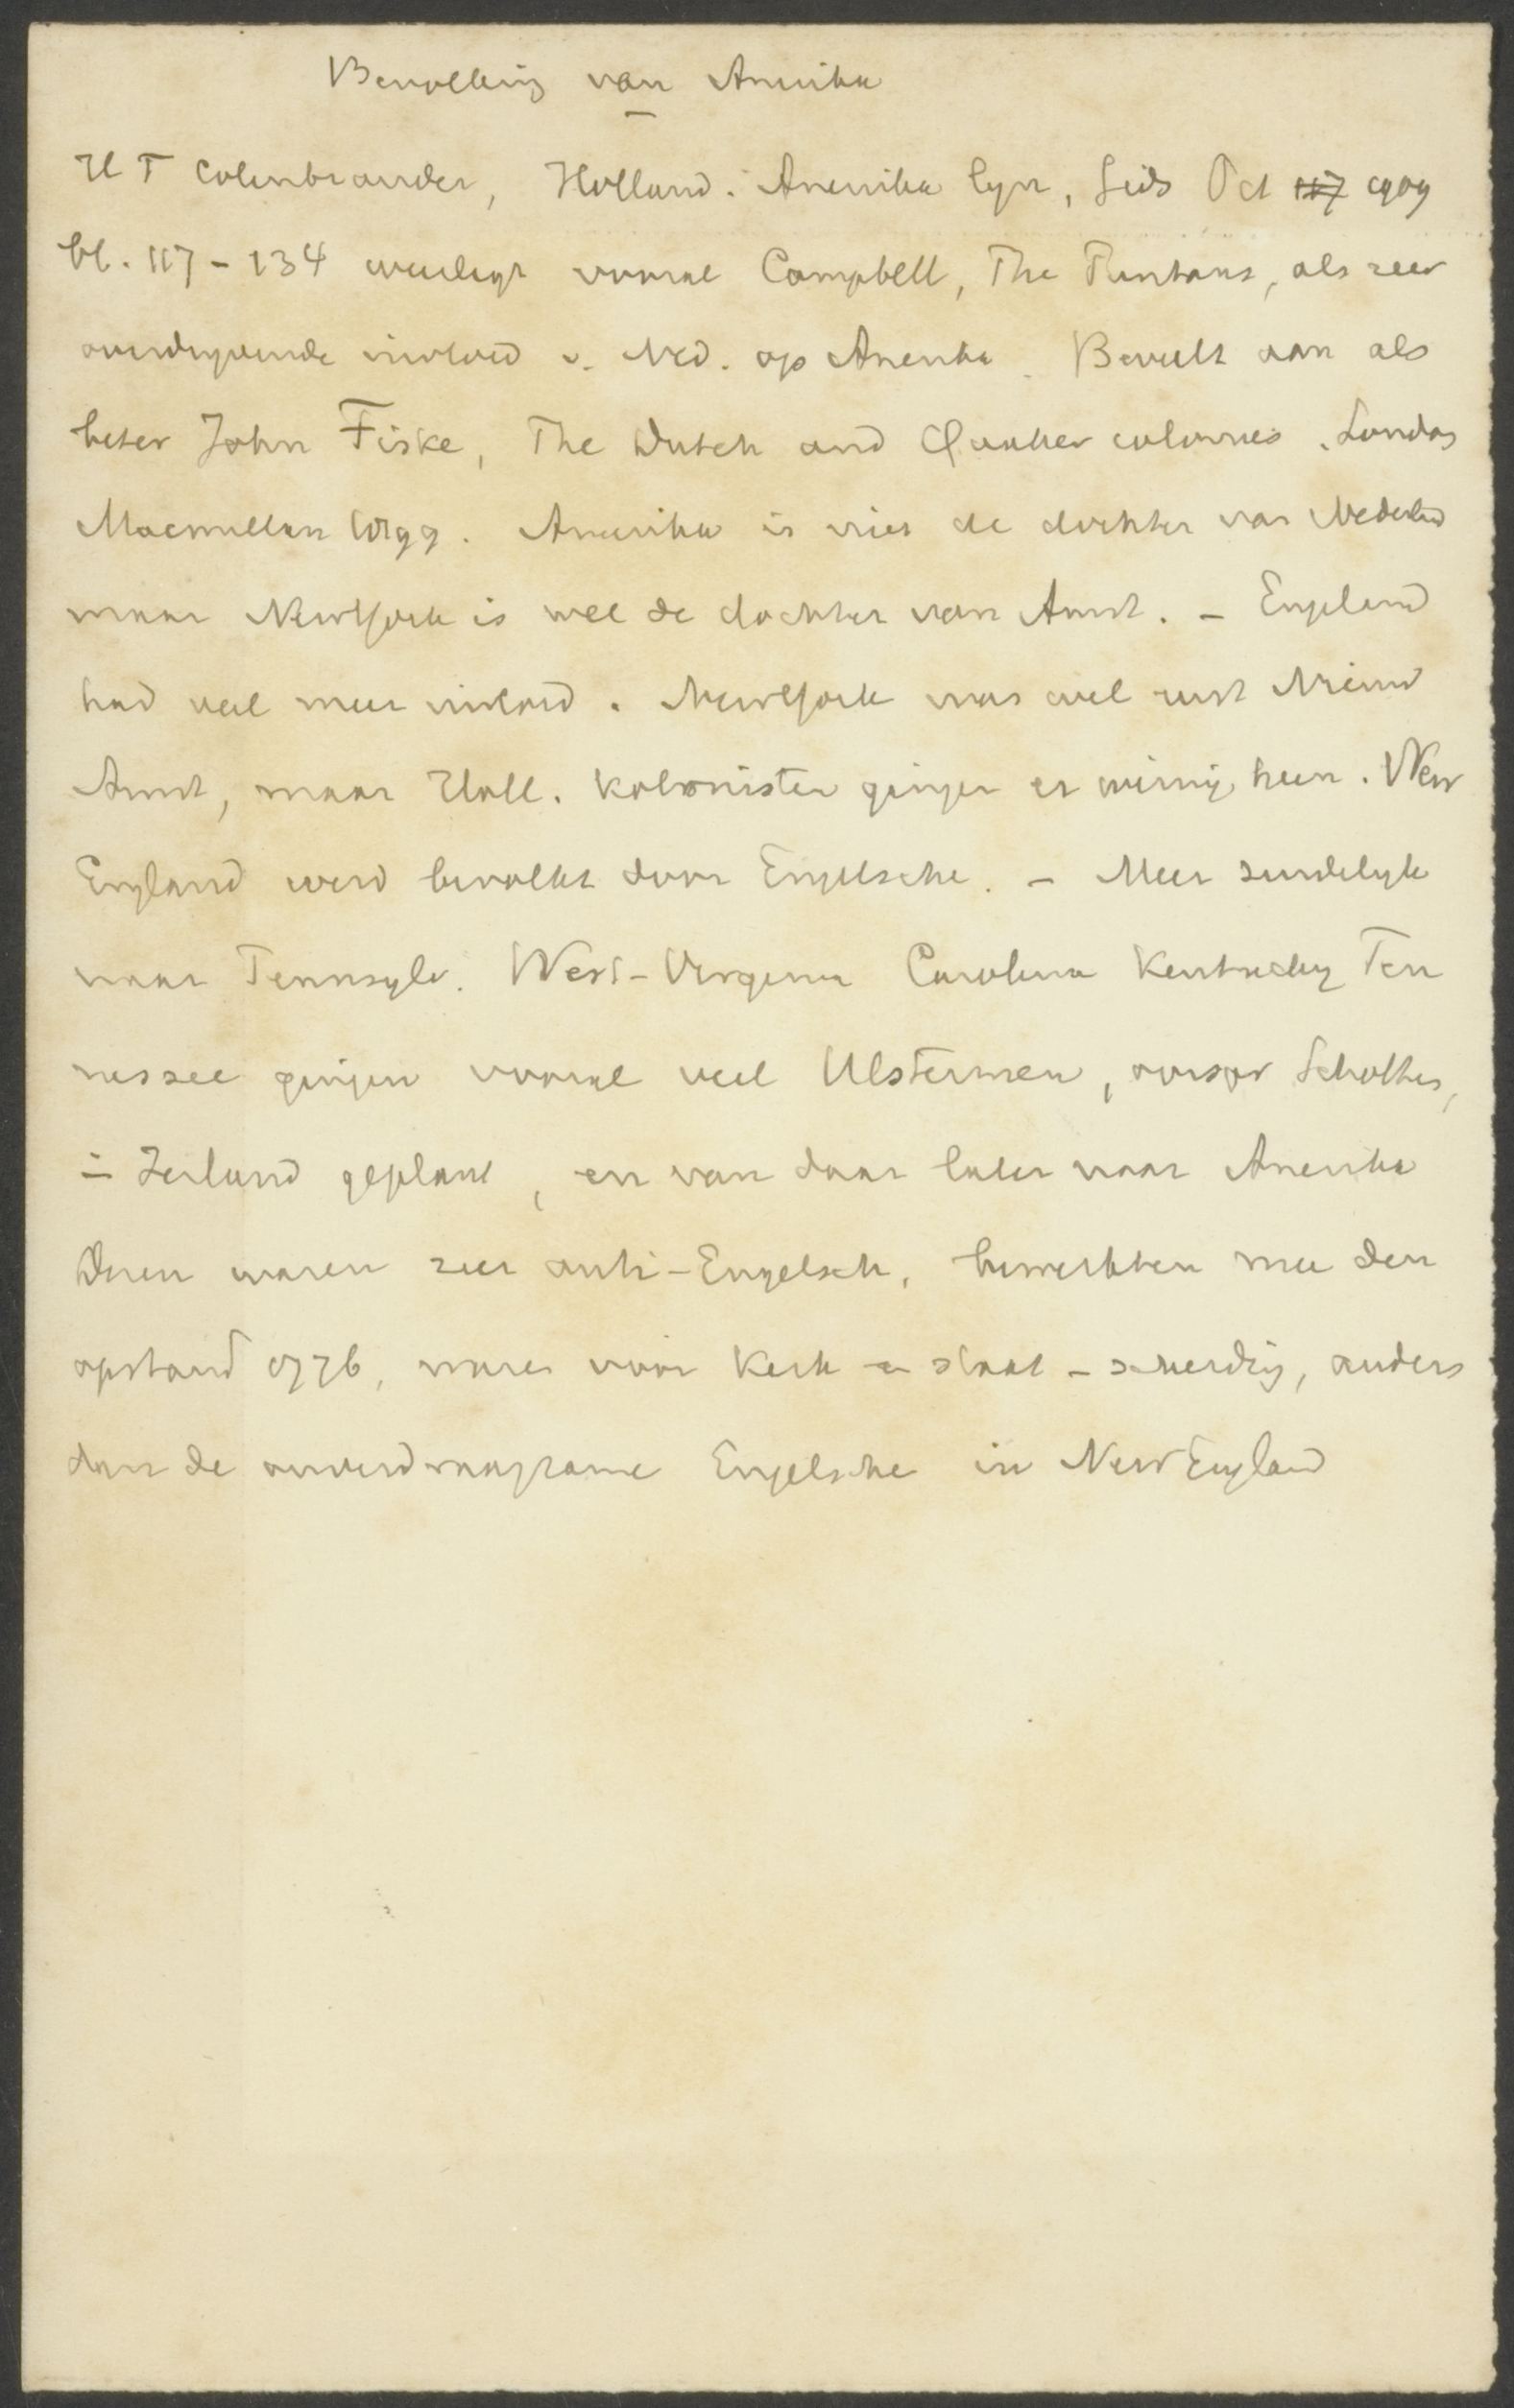 Bevolking van Amerika
H T Colenbrander, Holland-Amerika lyn, Gids Oct 117 1909
bl. 117-134 weerlegt vooral Campbell, The Puritans, als zeer
overdryvende invloed v. Ned. op Amerika. Beveelt aan als
beter John Fiske, The Dutch and Quaker colonies. London
Macmillan 1899. Amerika is niet de dochter van Nederland
maar NewYork is wel de dochter van Amst. - Engeland
had veel meer invloed. NewYork was wel eerst Nieuw
Amst, maar Holl. kolonisten gingen er weinig heen. New
England werd bevolkt door Engelsche. - Meer zuidelyk
naar Pennsylv. West-Virginia Carolina Kentucky Ten
nessee gingen vooral veel Ulstermen, oorspr Schotten,
in Ierland geplant, en van daar later naar Amerika
Dezen waren zeer anti-Engelsch, bewerkten mee den
opstand 1776, waren voor kerk en staat-scheiding, anders
dan de onverdraagzame Engelsche in NewEngland